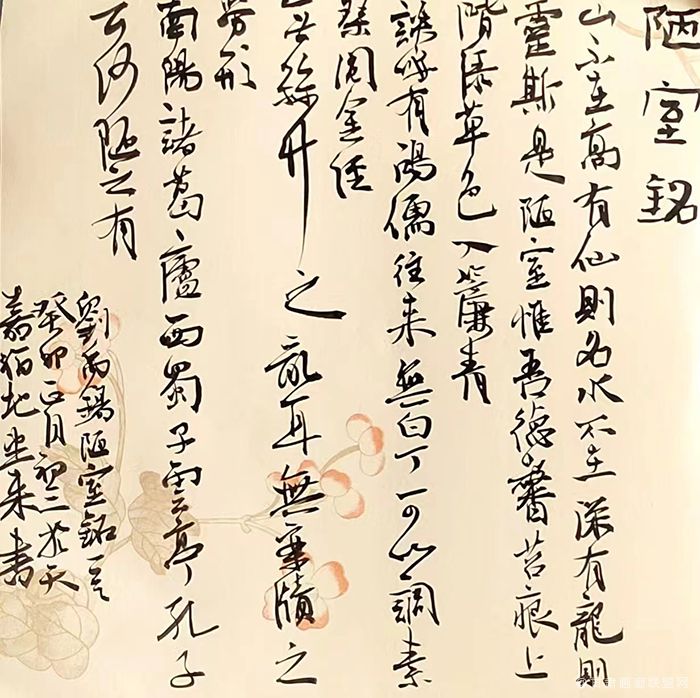 陋室銘
山不在高有仙則名水不在深有龍則
靈斯是陋室惟吾德馨苔痕上
階綠草色入簾青
談咲有鴻儒往来無白丁可以調素
琴閲金経
無絲竹之亂耳無案牘之
勞形
南陽諸葛廬西蜀子雲亭孔子
云何陋之有
劉禹錫陋室銘
癸卯正月初二於天
書